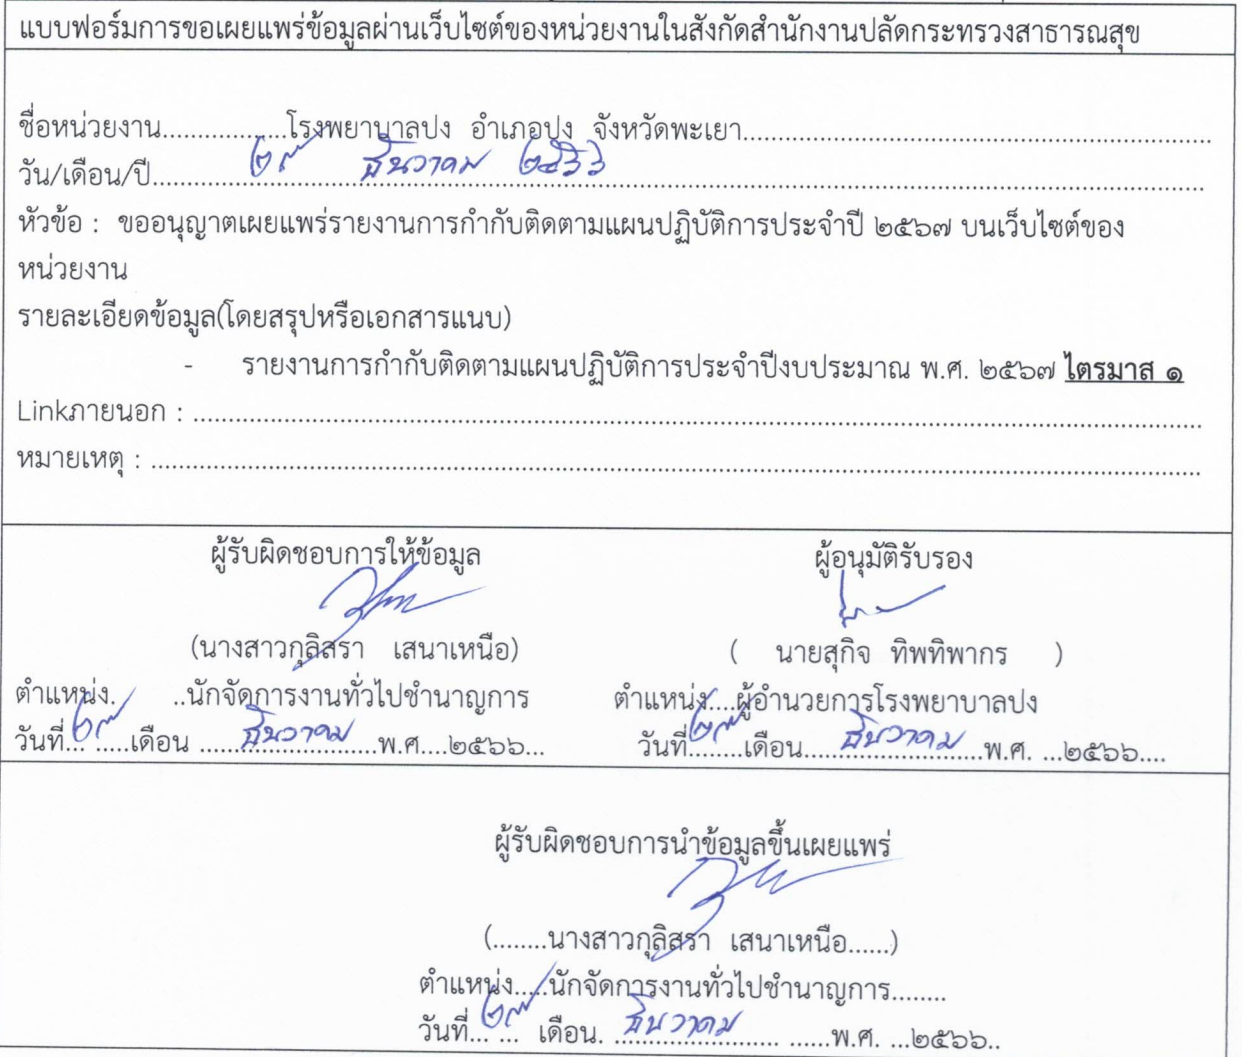 แบบฟอร์มการขอเผยแพร่ข้อมูลผ่านเว็บไซต์ของหน่วยงานในสังกัดสำนักงานปลัดกระทรวงสาธารณสุข
ชื่อหน่วยงาน..................โรงพยาบาลปง อำเภอปง จังหวัดพะเยา....................................................................
วัน/เดือน/ปี.......๒๙ ธันวาคม ๒๕๖๖.......
หัวข้อ : ขออนุญาตเผยแพร่รายงานการกำกับติดตามแผนปฏิบัติการประจำปี ๒๕๖๗ บนเว็บไซต์ของ
หน่วยงาน
รายละเอียดข้อมูล(โดยสรุปหรือเอกสารแนบ)
- รายงานการกำกับติดตามแผนปฏิบัติการประจำปีงบประมาณ พ.ศ. ๒๕๖๗ ไตรมาส ๑
Linkภายนอก : ....................................................................................
หมายเหตุ : ....................................................................................
ผู้รับผิดชอบการให้ข้อมูล ผู้อนุมัติรับรอง
(นางสาวกุลิสรา เสนาเหนือ) ( นายสุกิจ ทิพทิพากร )
ตำแหน่ง. ..นักจัดการงานทั่วไปชำนาญการ ตำแหน่ง....ผู้อำนวยการโรงพยาบาลปง
วันที่...๒๙.....เดือน ...ธันวาคม...พ.ศ....๒๕๖๖... วันที่...๒๙...เดือน...ธันวาคม...พ.ศ. ...๒๕๖๖....
ผู้รับผิดชอบการนำข้อมูลขึ้นเผยแพร่
(........นางสาวกุลิสรา เสนาเหนือ......)
ตำแหน่ง.....นักจัดการงานทั่วไปชำนาญการ........
วันที่...๒๙... เดือน. ...ธันวาคม... ......พ.ศ. ...๒๕๖๖..